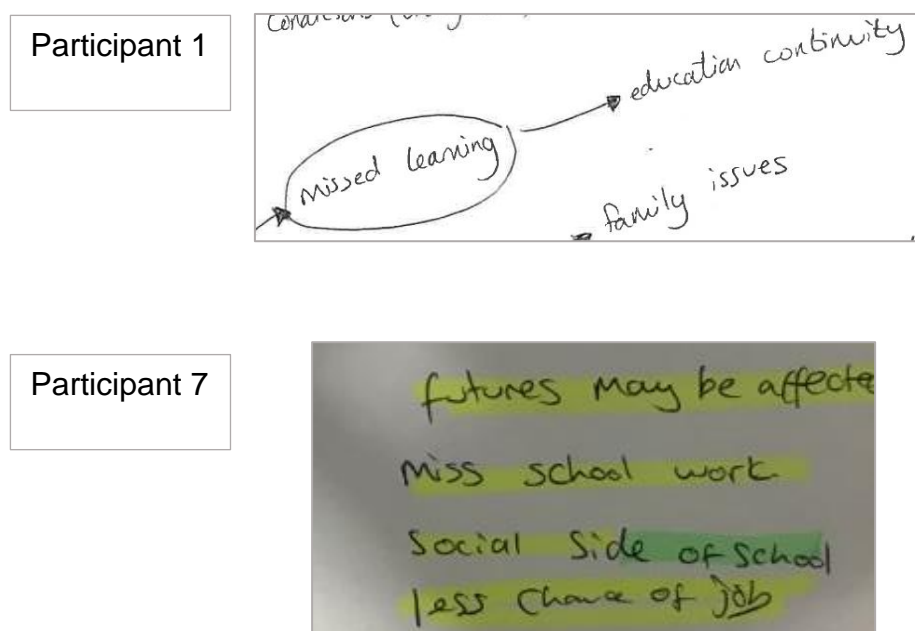 Participant 1
education continuity
missed learning
family issues
Participant 7
futures may be affecte
miss school work
Social Side of School
less chance of job